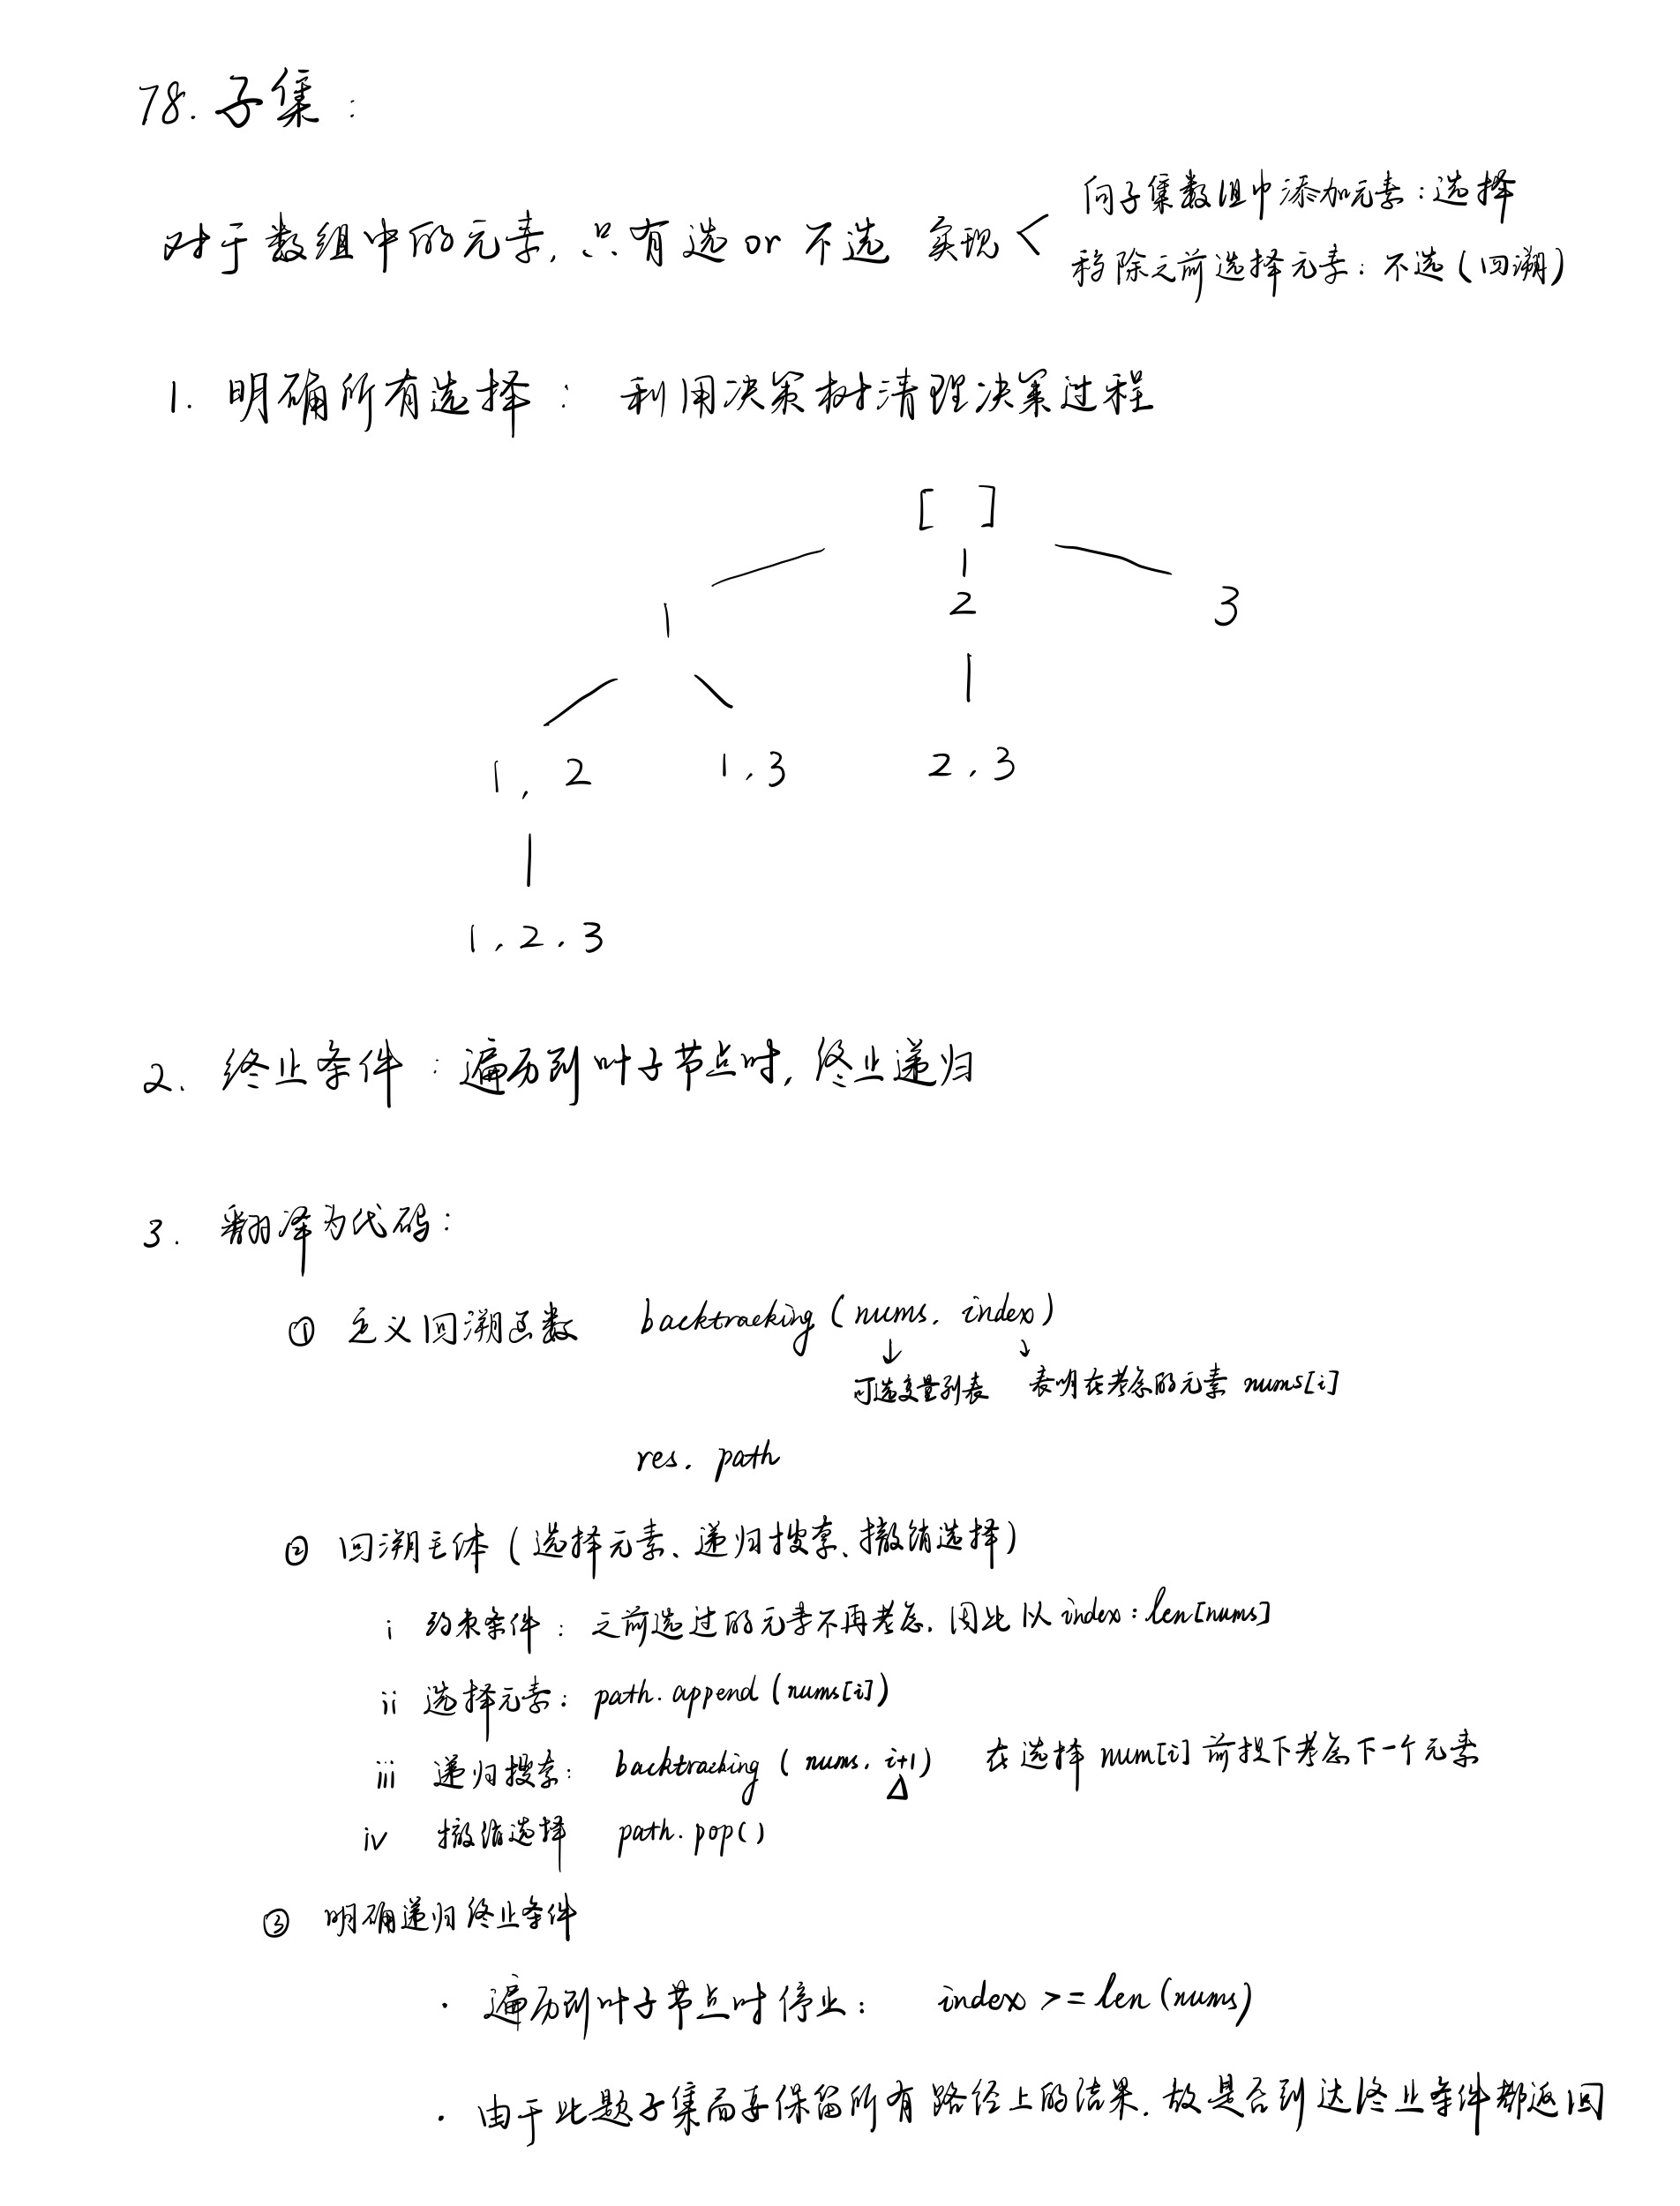 78. 子集：
对于数组中的元素，只有选 or 不选 实现 <
向子集数组中添加元素：选择
移除之前选择元素：不选（回溯）
1. 明确所有选择： 利用决策树清理决策过程
[ ]
1 2 3
1, 2 1,3 2,3
1,2,3
2. 终止条件：遍历到叶子节点时，终止递归
3. 翻译为代码：
① 定义回溯函数 backtracking (nums, index)
↓ ↓
可选变量列表 表明在考虑的元素 nums[i]
res. path
② 回溯主体（选择元素、递归搜索、撤销选择）
i 约束条件：之前选过的元素不再考虑，因此以 index : len[nums]
ii 选择元素：path.append (nums[i])
iii 递归搜索： backtracking ( nums, i+1) 在选择 num[i] 前提下考虑下一个元素
Δ
iv 撤销选择 path.pop()
③ 明确递归终止条件
· 遍历到叶子节点时停止： index >= len (nums)
· 由于此题子集需要保留所有路径上的结果，故是否到达终止条件都返回